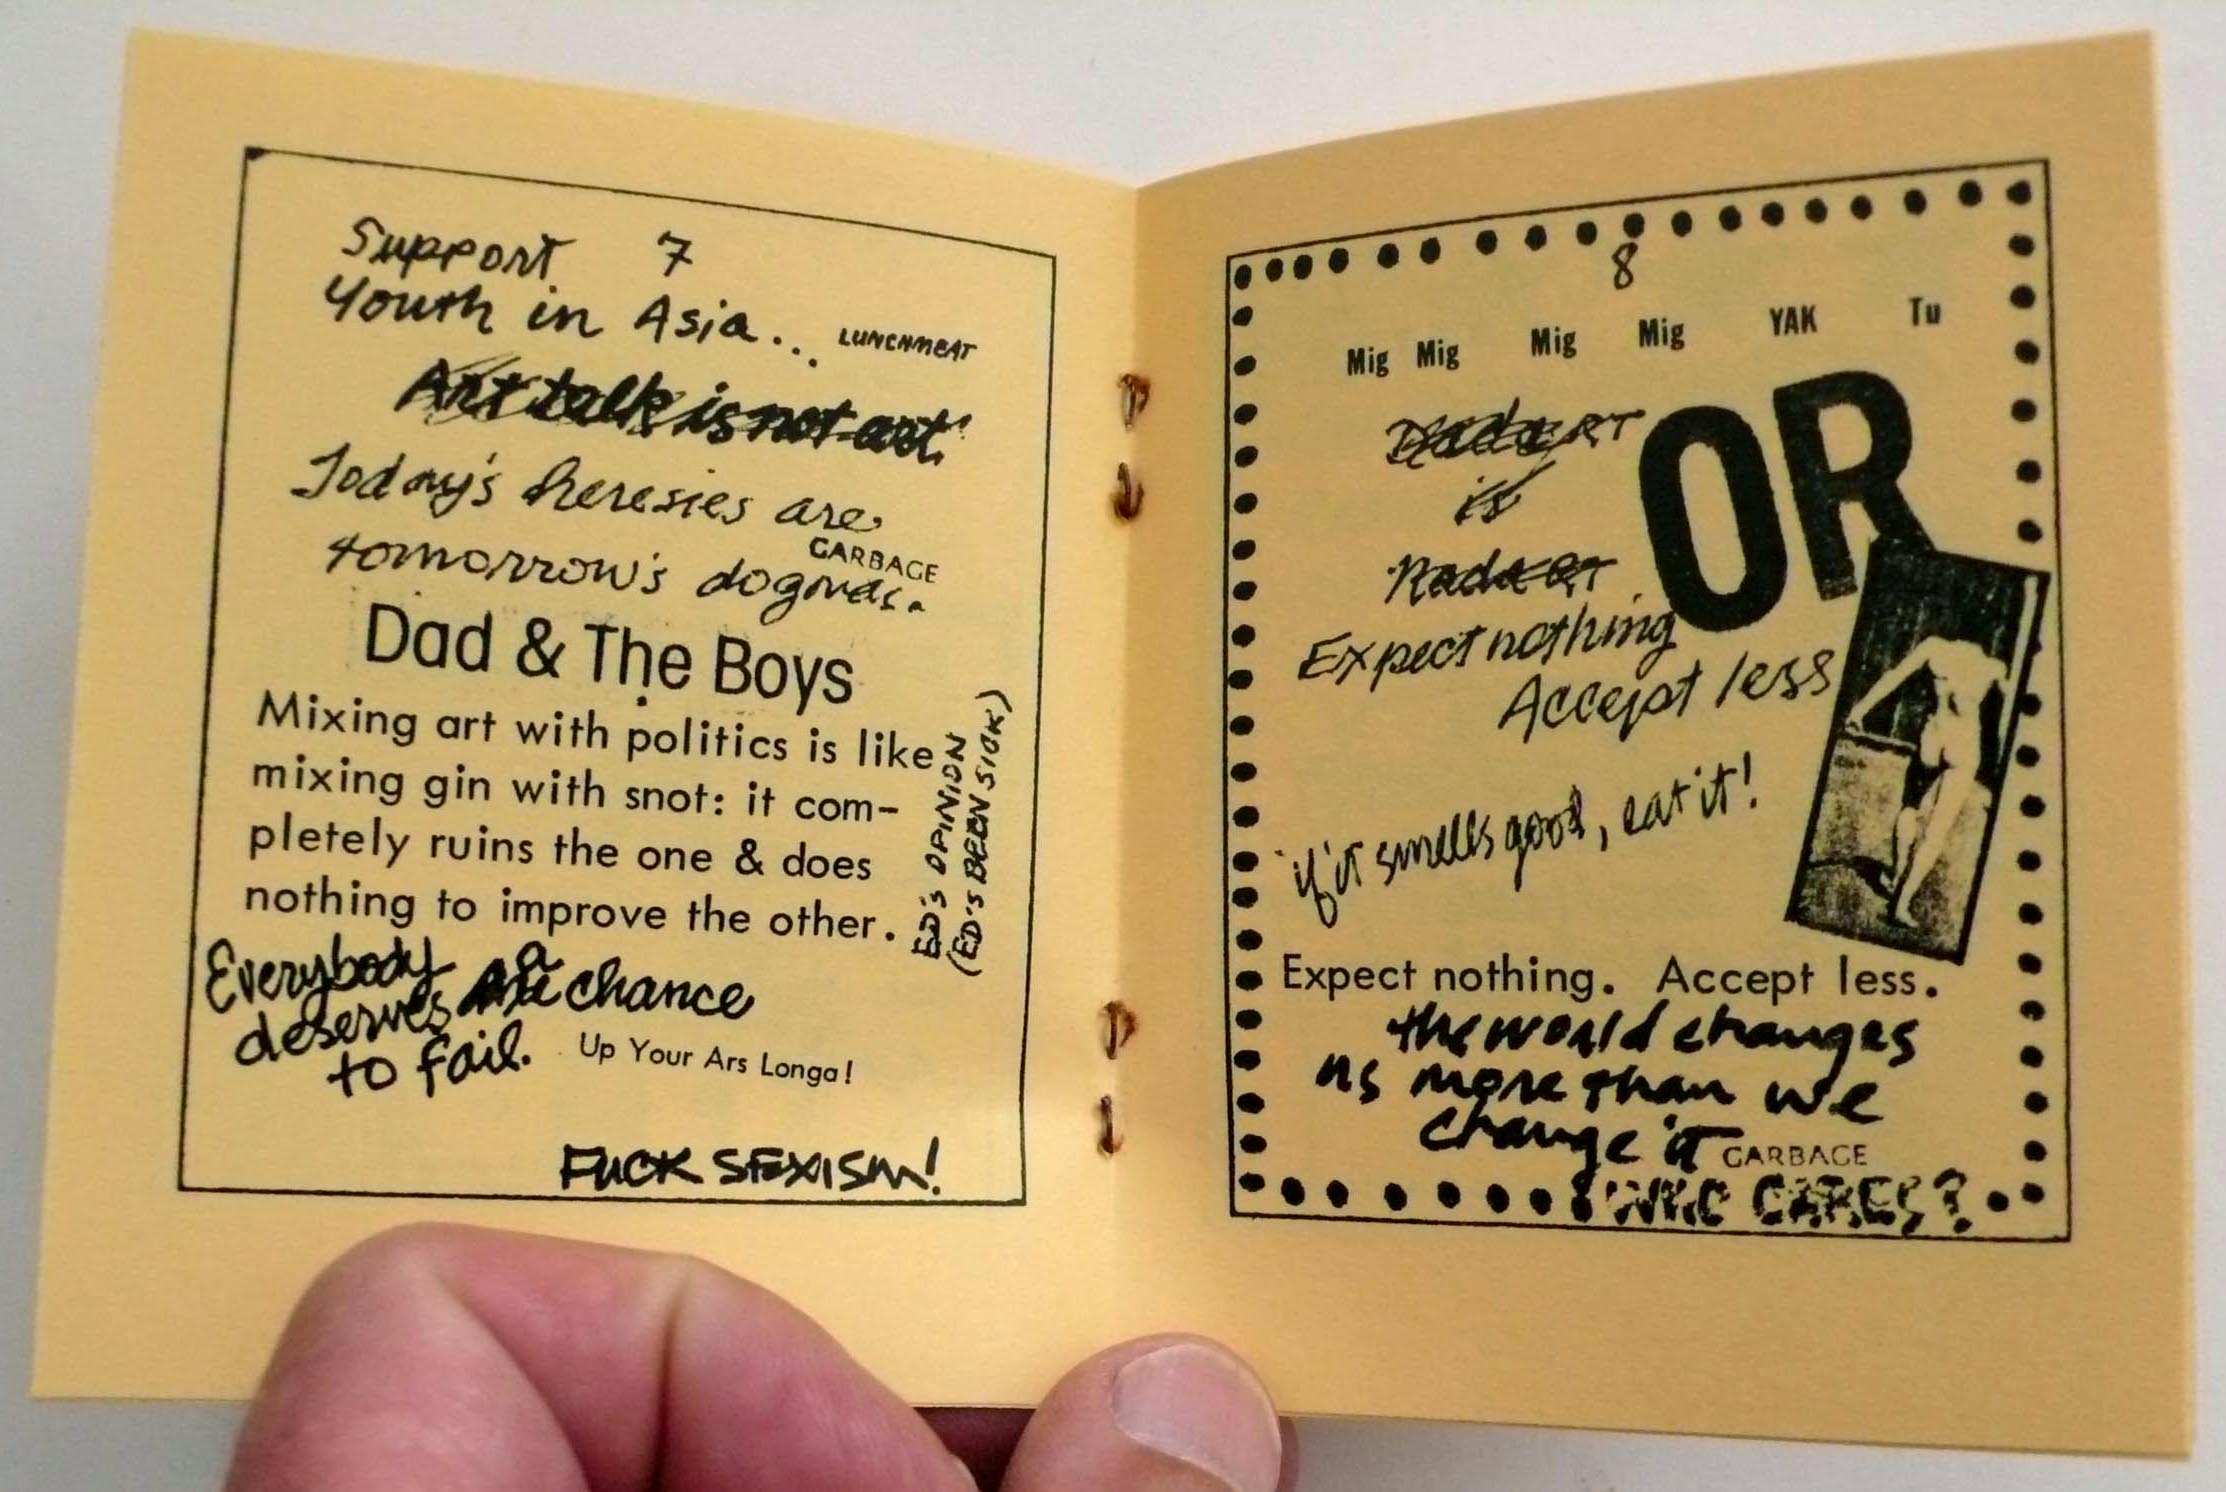 Support 7
Youth in Asia... LUNCHMEAT
Art talk is not art!
Today's heresies are
GARBAGE
tomorrow's dogmas.
Dad & The Boys
Mixing art with politics is like
mixing gin with snot: it com-
pletely ruins the one & does
nothing to improve the other.
ED'S OPINION
(ED'S BEEN SICK)
Everybody
deserves a chance
to fail.
Up Your Ars Longa!
FUCK SEXISM!
8
Mig Mig Mig Mig YAK Tu
OR
is
Expect nothing
Accept less
if it smells good, eat it!
Expect nothing. Accept less.
the world changes
us more than we
change it GARBAGE
WHO CARES?